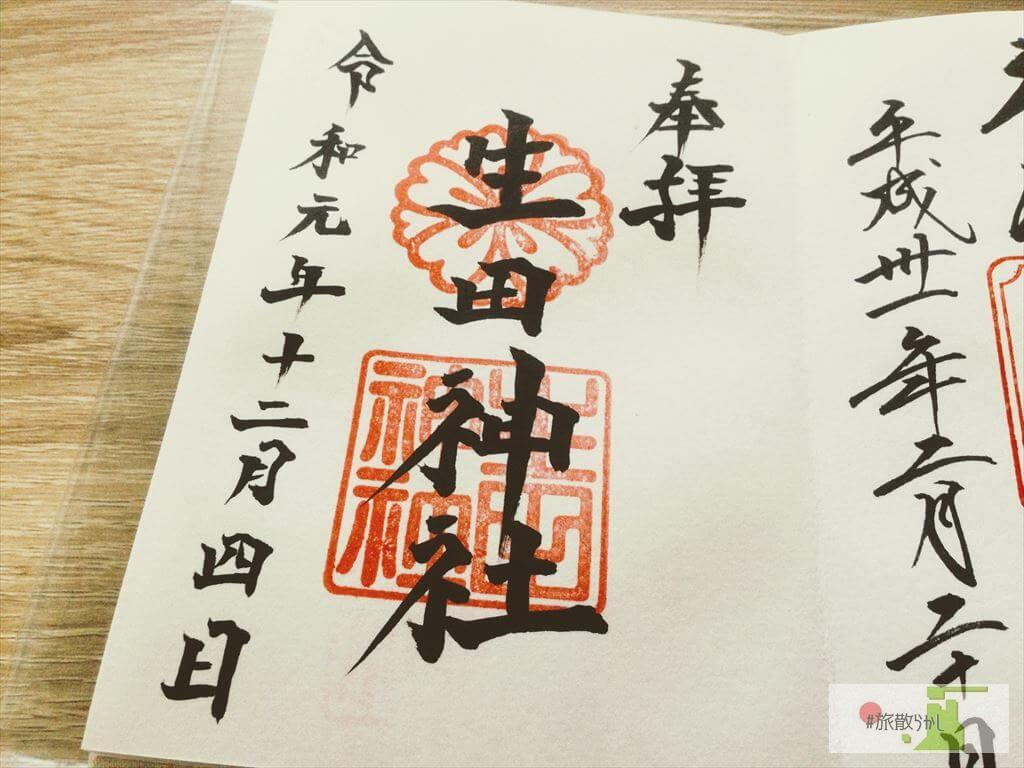 平成卅一年二月二十日
奉拝
生田神社
生田神社
令和元年十二月四日
#旅散らかし